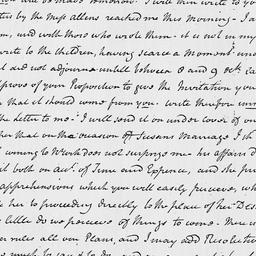 will then write to you
tters by the Miss Allens reached me this morning - I a
m, and with those who wrote them - it is not in my
write to the Children, having scarce a Moment und
id not adjourn untill between 8 and 9 oCk La
pprove of your Proposition to give the Invitation you
that it should come from you. write therefore imm
the letter to me. I will send it on under cover of on
her that on the occasion of Susans Marriage I th
coming to Work does not surprise me - his affairs d
it both on acct. of Time and Expence, and she pr
apprehensions which you will easily perceive, wh
her to proceeding directly to the place of her Des
little do we perceive of things to come. Here is
over rules all our Plans, and I may add Resolutio